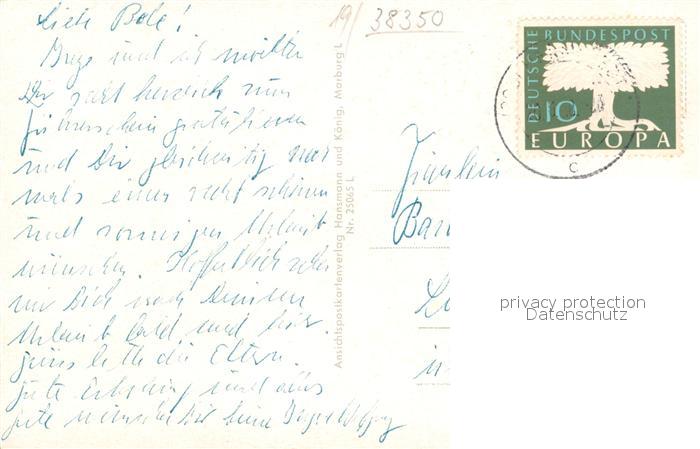 Liebe Bele!
und ich wollten
Dir recht herzlich zum
Führerschein gratulieren
und Dir gleichzeitig noch-
mals einen recht schönen
und sonnigen Urlaub
wünschen. Hoffentlich sehen
wir Dich nach Deinem
Urlaub bald und hier.
bitte die Eltern.
Gute Erholung und alles
Gute wünschen Dir Deine
19/ 38350
Ansichtspostkartenverlag Hansmann und König, Marburg L
Nr. 25065 L
DEUTSCHE BUNDESPOST
10
EUROPA
C
Fräulein
privacy protection
Datenschutz